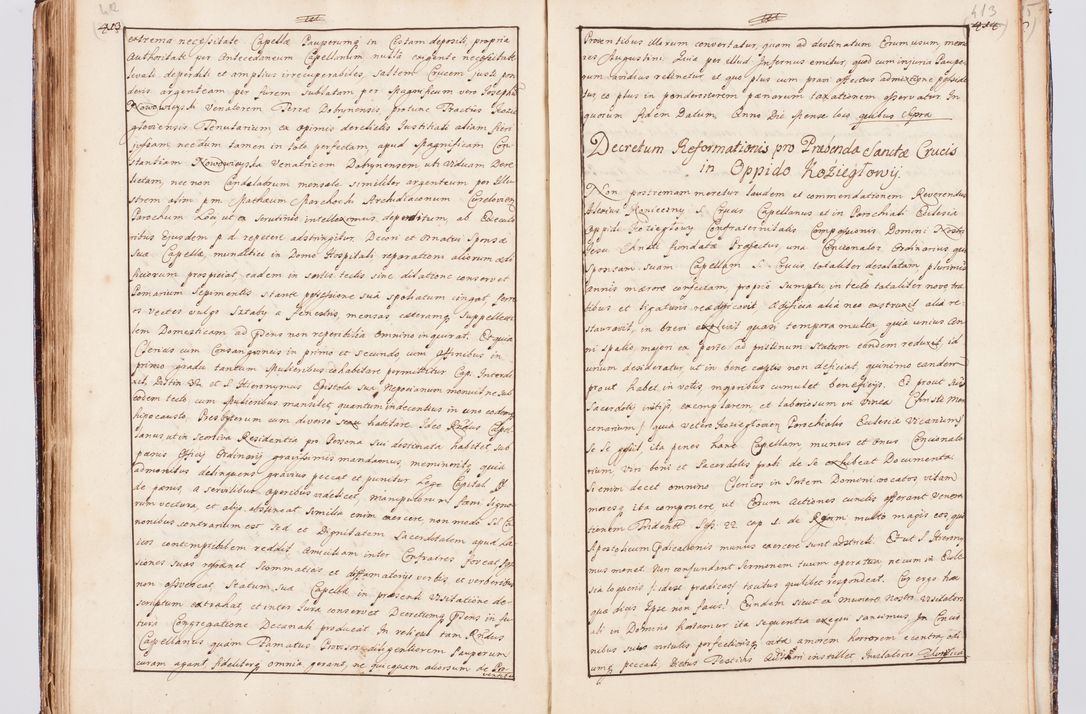 412
413
extrema necessitate Capellæ Pauperumq in Cistam depositi, propria
Authoritate per Antecedaneum Capellanum nulla exigente necessitate
levati deperditi et amplius irrecuperabiles, saltem Crucem justi pon
deris argenteam per furem Sublatam per Magnificum vero Josephum
Nowowieyski Venatorem Terræ Dobrynensis, pro tunc Tractus Kozie
gloviensis Tenutarium, ex opimis derelictis Justificati etiam
necdum tamen in toto perfectam, apud Magnificam Con
stantiam Nowowieyska Venatricem Dobrynensem uti Viduam Dere
lictam, nec non Candelabrum mensale similiter argenteum per Illu
strem olim p.m. Mathæum Marchocki Archidiaconum Curelovien
Parochum ut ex Scrutinio intelleximus deperditum, ab Executo
ribus Ejusdem p.d. repetere adstringitur. Decori et Ornatui Sponsæ
Suæ Capellæ, munditiei in Domo Hospitali reparationi aliorum ædi
ficiorum prospiciat, eadem in sartis tectis sine dilatione conservet
Pomarium Sepimentis stante possessione suâ spoliatum cingat, ferre
os vectes vulgo Sztaby a fenestris, mensas, cæteramq Suppellecti
lem Domesticam ad præsens non reperibilia omnino inquirat. Et quia
Clericus cum Consanguineis in primo et secundo, cum Affinibus in
primo gradu tantum Mulieribus cohabitare permittitur Cap. Interdi
xit, Distin 32. et S. Hieronymus Epistola sua Nepocianum monuit ne sub
eodem tecto cum Mulieribus mansitet, quantum indecentius in uno eodemq
hypocausto, Presbyterum cum diverso sexu habitare. Ideo Rndus Capel
lanus ut in Seorsiva Residentia pro Persona Sui destinata habitet, sub
pœnis Officij Ordinarij gravissimis mandamus, meminerit, quia
admonitus delinquens gravius peccat et punitur Lege Capital.
de pœnis, a servilibus operibus videlicet, manipulorum fœni, ligno
rum vectura, et alijs abstineat Similia enim exercere non modo SS. Ca
nonibus contrarium est sed et Dignitatem Sacerdotalem apud La
icos contemptibilem reddit, Amicitiam inter Confratres foveat, Pas
siones suas refrænet Scommatics et diffamatorijs verbis, et verberibus
non offendat, Statum suæ Capellæ in præsenti Visitatione de
scriptum extrahat, et inter Jura conservet Decretumq præsens in fu
tura Congregatione Decanali producat. In reliquo tam Rndus
Capellanus, quàm Famatus Provisor diligentiorem Pauperum
curam agant, fideliterq omnia gerant, ne quicquam aliorsum de Pro
ventibus
413
414
Proventibus illorum convertatur, quàm ad destinatum Eorum usum, memo
res Augustini. Quia per illud Infernus emitur, quod cum injuria Paupe
rum avidius retinetur, et quo plus cum pravi affectus admixtione posside
tur, eo plus in ponderosiorem pœnarum taxationem asservatur. In
quorum fidem Datum. Anno Die Mense loco quibus supra
Decretum Reformationis pro Præbenda Sanctæ Crucis
in Oppido Koziegłowÿ.
Non postremam meretur laudem et commendationem Reverendus
Konieczny S. Crucis Capellanus et in Parochiali Ecclesia
Oppidi Koziegłowy Confraternitatis Compassionis Domini Nostri
Jesu Christi fundatæ Præfectus, una Concionator Ordinarius, qui
Sponsam suam Capellam S. Crucis totaliter desolatam pluribus
annis mærore confectam, propriô Sumptu in tecto totaliter novo tra
bibus et ligaturis reædificavit, Ædificia alia neo exstruxit alia re
stauravit, in brevi explevit quasi tempora multa, quia unius An
ni spatio, majori ex parte ad pristinum Statum eandem reduxit, id
unum desideratur, ut in bene cæptis non deficiat, quinimo eandem
prout habet in votis, majoribus cumulet beneficijs. Et prout se
Sacerdotij insignijs, exemplarem et laboriosum in Vinea Christi Mer
cenarium / qua Vetero Koziegłoven Parochialis Ecclesiæ Vicarium /
se se gessit, ita penes hanc Capellam, munus et onus Conciona
rium viri boni et Sacerdotis probi de Se exhibeat Documenta.
Si enim decet omnino Clericos in Sortem Domini vocatos, vitam
moresq ita componere ut Eorum actiones cunctis afferant Venera
tionem Trident. Sess. 22. cap. 1. de Reform. multo magis eos, qui
Apostolicum Prædicationis munus exercere sunt adstricti. Et ut S. Hierony
mus monet. Non confundant Sermonem tuum opera tua, ne cum in Eccle
sia loqueris / id est prædicas / tacitus quilibet respondeat. Cur ergo hæc
quæ dicis ipse non facis? Eundem sicut ex munere Nostri Visitatori
ali in Domino hortamur, ita sequentia exequi sancimus. In Concio
nibus suis virtutis perfectionisq vitæ amorem horrorem e contra, odi
umq peccati, Metus Pœnitus Auditori instillet Invectorio